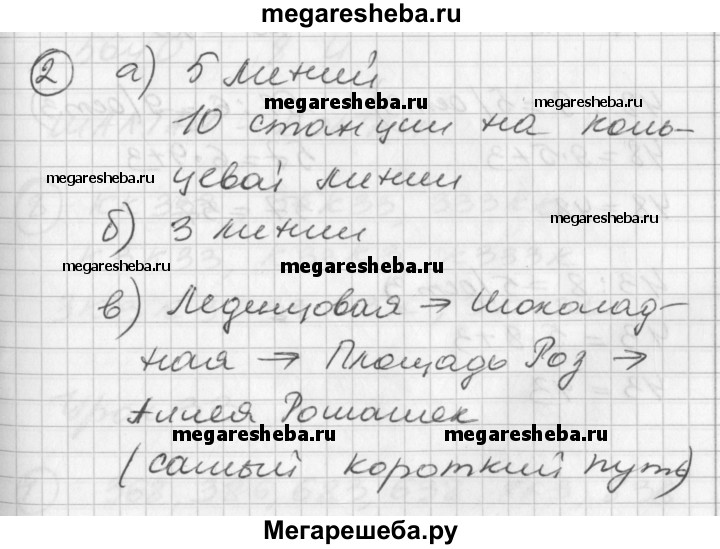 megaresheba.ru
2 а) 5 линий
megaresheba.ru megaresheba.ru
10 станции на коль-
megaresheba.ru
цевой линии
megaresheba.ru
б) 3 линии
megaresheba.ru megaresheba.ru
в) Леденцовая → Шоколад-
ная → Площадь Роз →
Аллея Ромашек
megaresheba.ru megaresheba.ru
(самый короткий путь)
Мегарешеба.ру